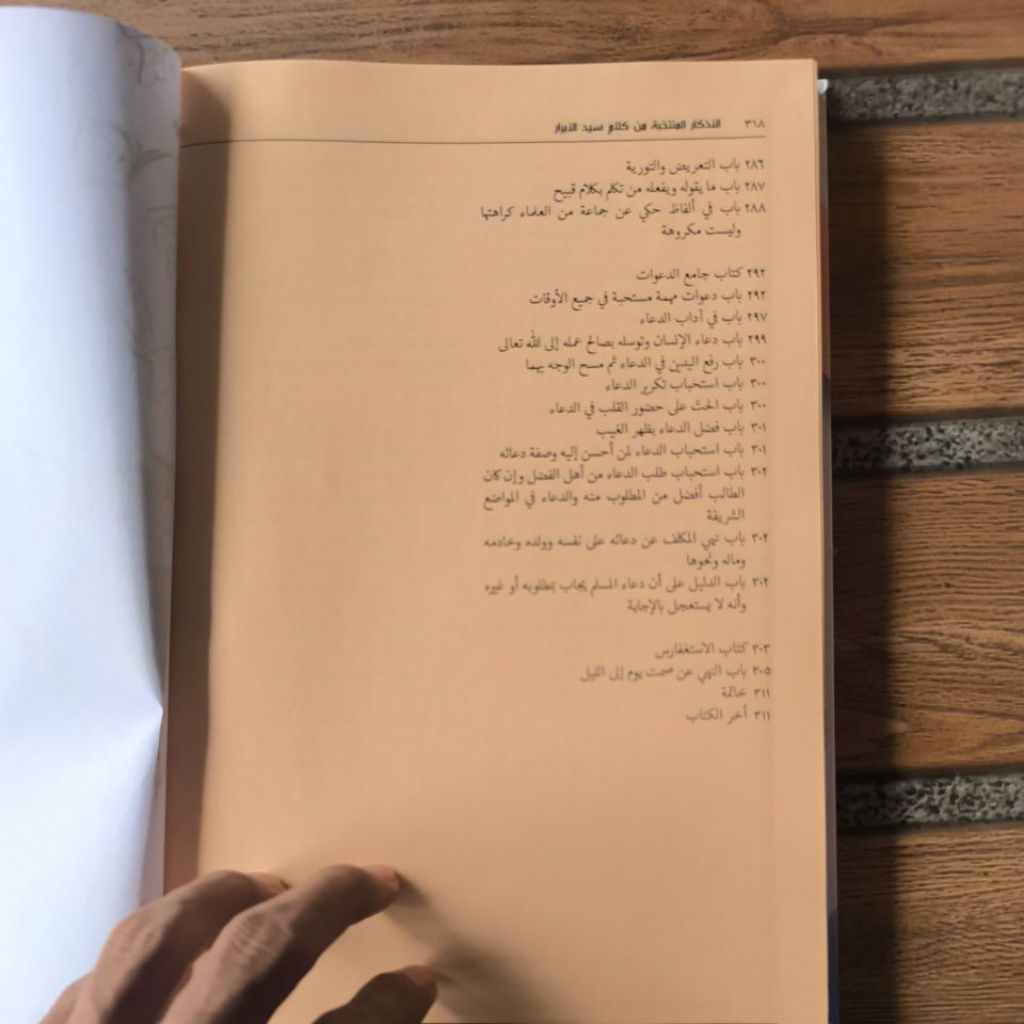 ٣١٨ الاذكار المنتخبة من كلام سيد الابرار
٢٨٦ باب التعريض والتورية
٢٨٧ باب ما يقوله ويفعله من تكلم بكلام قبيح
٢٨٨ باب في ألفاظ حكي عن جماعة من العلماء كراهتها
وليست مكروهة
٢٩٢ كتاب جامع الدعوات
٢٩٢ باب دعوات مهمة مستحبة في جميع الأوقات
٢٩٧ باب في آداب الدعاء
٢٩٩ باب دعاء الإنسان وتوسله بصالح عمله إلى الله تعالى
٣٠٠ باب رفع اليدين في الدعاء ثم مسح الوجه بهما
٣٠٠ باب استحباب تكرير الدعاء
٣٠٠ باب الحث على حضور القلب في الدعاء
٣٠١ باب فضل الدعاء بظهر الغيب
٣٠١ باب استحباب الدعاء لمن أحسن إليه وصفة دعائه
٣٠٢ باب استحباب طلب الدعاء من أهل الفضل وإن كان
الطالب أفضل من المطلوب منه والدعاء في المواضع
الشريفة
٣٠٢ باب نهي المكلف عن دعائه على نفسه وولده وخادمه
وماله ونحوها
٣٠٢ باب الدليل على أن دعاء المسلم يجاب بمطلوبه أو غيره
وأنه لا يستعجل بالإجابة
٣٠٣ كتاب الاستغفارس
٣٠٥ باب النهي عن صمت يوم إلى الليل
٣١١ خاتمة
٣١١ أخر الكتاب